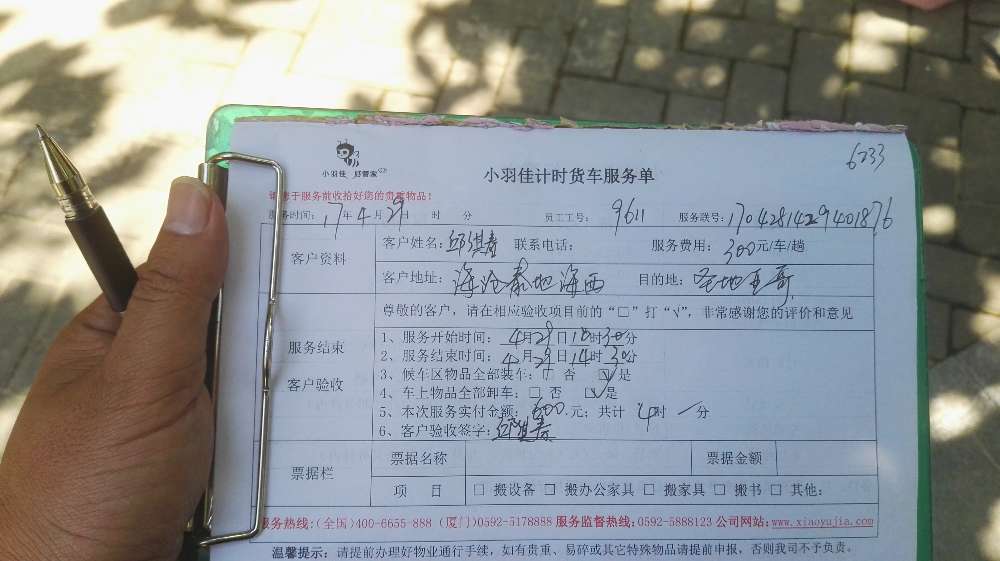 6233
小羽佳 好管家
小羽佳计时货车服务单
请您于服务前收拾好您的贵重物品!
服务时间: 17年4月29日 时 分 员工工号: 9611 服务联号: 1704281429401876
客户资料
客户姓名: 邱祺寿 联系电话: 服务费用: 300元/车/趟
客户地址: 海沧泰地海西 目的地: 圣地亚哥
尊敬的客户,请在相应验收项目前的“□”打“√”,非常感谢您的评价和意见
服务结束
客户验收
1、服务开始时间: 4月29日10时30分
2、服务结束时间: 4月29日14时30分
3、候车区物品全部装车: □ 否 ☑ 是
4、车上物品全部卸车: □ 否 ☑ 是
5、本次服务实付金额: 600元; 共计 4时 一分
6、客户验收签字:
票据栏
票据名称 票据金额
项 目 □ 搬设备 □ 搬办公家具 □ 搬家具 □ 搬书 □ 其他:
服务热线:(全国)400-6655-888 (厦门)0592-5178888 服务监督热线:0592-5888123 公司网站:www.xiaoyujia.com
温馨提示: 请提前办理好物业通行手续,如有贵重、易碎或其它特殊物品请提前申报,否则我司不予负责。